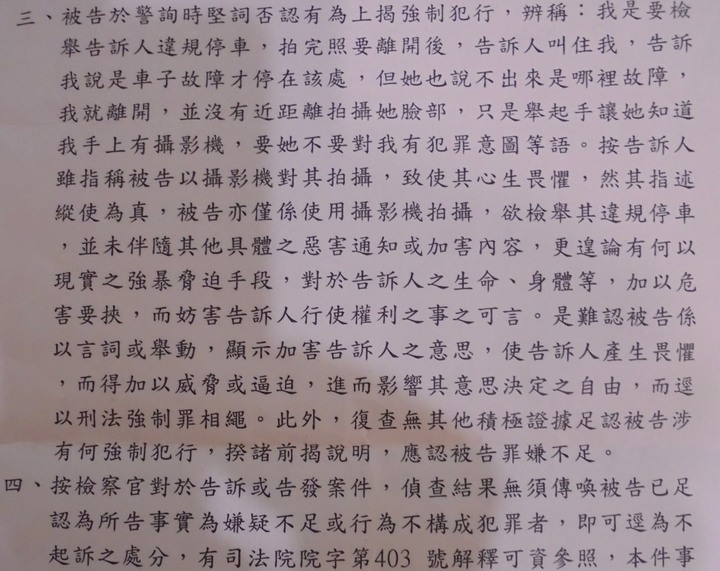 三、被告於警詢時堅詞否認有為上揭強制犯行，辨稱：我是要檢
舉告訴人違規停車，拍完照要離開後，告訴人叫住我，告訴
我說是車子故障才停在該處，但她也說不出來是哪裡故障，
我就離開，並沒有近距離拍攝她臉部，只是舉起手讓她知道
我手上有攝影機，要她不要對我有犯罪意圖等語。按告訴人
雖指稱被告以攝影機對其拍攝，致使其心生畏懼，然其指述
縱使為真，被告亦僅係使用攝影機拍攝，欲檢舉其違規停車
，並未伴隨其他具體之惡害通知或加害內容，更遑論有何以
現實之強暴脅迫手段，對於告訴人之生命、身體等，加以危
害要挾，而妨害告訴人行使權利之事之可言。是難認被告係
以言詞或舉動，顯示加害告訴人之意思，使告訴人產生畏懼
，而得加以威脅或逼迫，進而影響其意思決定之自由，而逕
以刑法強制罪相繩。此外，復查無其他積極證據足認被告涉
有何強制犯行，揆諸前揭說明，應認被告罪嫌不足。
四、按檢察官對於告訴或告發案件，偵查結果無須傳喚被告已足
認為所告事實為嫌疑不足或行為不構成犯罪者，即可逕為不
起訴之處分，有司法院院字第403 號解釋可資參照，本件事